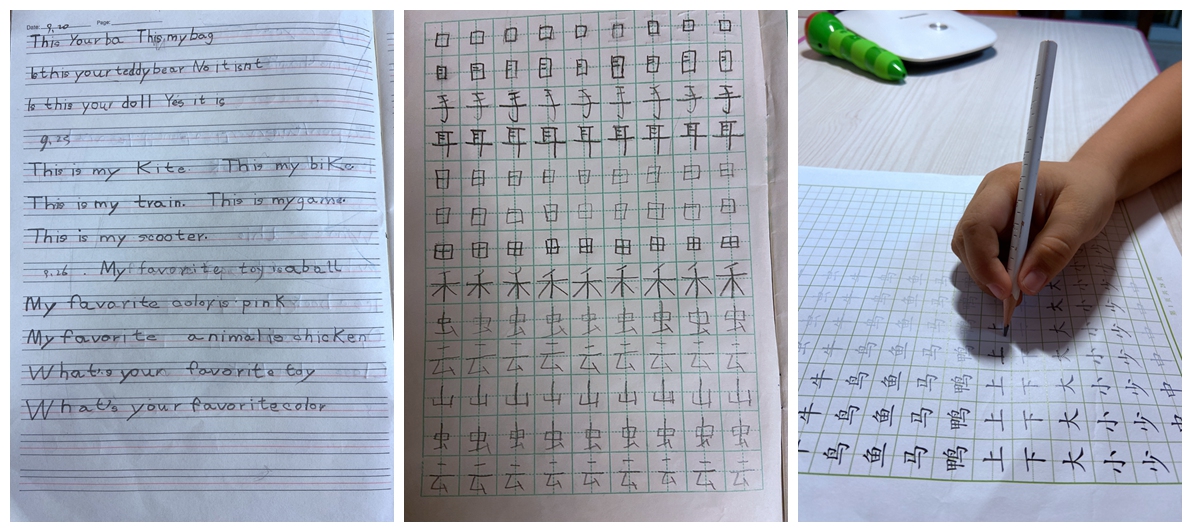 Date: 9.20 Page:
This Your ba This my bag
Is this your teddy bear No it isnt
Is this your doll Yes it is
9.25
This is my Kite. This is my bike.
This is my train. This is my game.
This is my scooter.
9.26. My favorite toy is a ball
My favorite color is pink.
My favorite animal is chicken
What's your favorite toy
What's your favorite color
口 口 口 口 口 口 口 口 口
目 目 目 目 目 目 目 目 目
手 手 手 手 手 手 手 手 手
耳 耳 耳 耳 耳 耳 耳 耳 耳
日 日 日 日 日 日 日 日 日
口 口 口 口 口 口 口 口 口
田 田 田 田 田 田 田 田 田
禾 禾 禾 禾 禾 禾 禾 禾 禾
虫 虫 虫 虫 虫 虫 虫 虫 虫
云 云 云 云 云 云 云 云 云
山 山 山 山 山 山 山 山 山
虫 虫 虫 虫 虫 虫 虫 虫 虫
云 云 云 云 云 云 云 云 云
牛 鸟 鱼 马 鸭 上 下 大 小 少 中
牛 鸟 鱼 马 鸭 上 下 大 小 少 中
牛 鸟 鱼 马 鸭 上 下 大 小 少